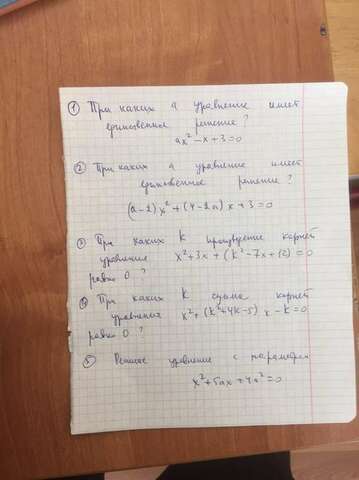 ① При каких a уравнение имеет
единственное решение?
ax² - x + 3 = 0
② При каких a уравнение имеет
единственное решение?
(a-2)x² + (4-2a)x + 3 = 0
③ При каких k произведение корней
уравнения x² + 3x + (k² - 7x + 12) = 0
равно 0?
④ При каких k сумма корней
уравнения x² + (k² + 4k - 5)x - k = 0
равно 0?
⑤ Решите уравнение с параметром
x² + 5ax + 4a² = 0